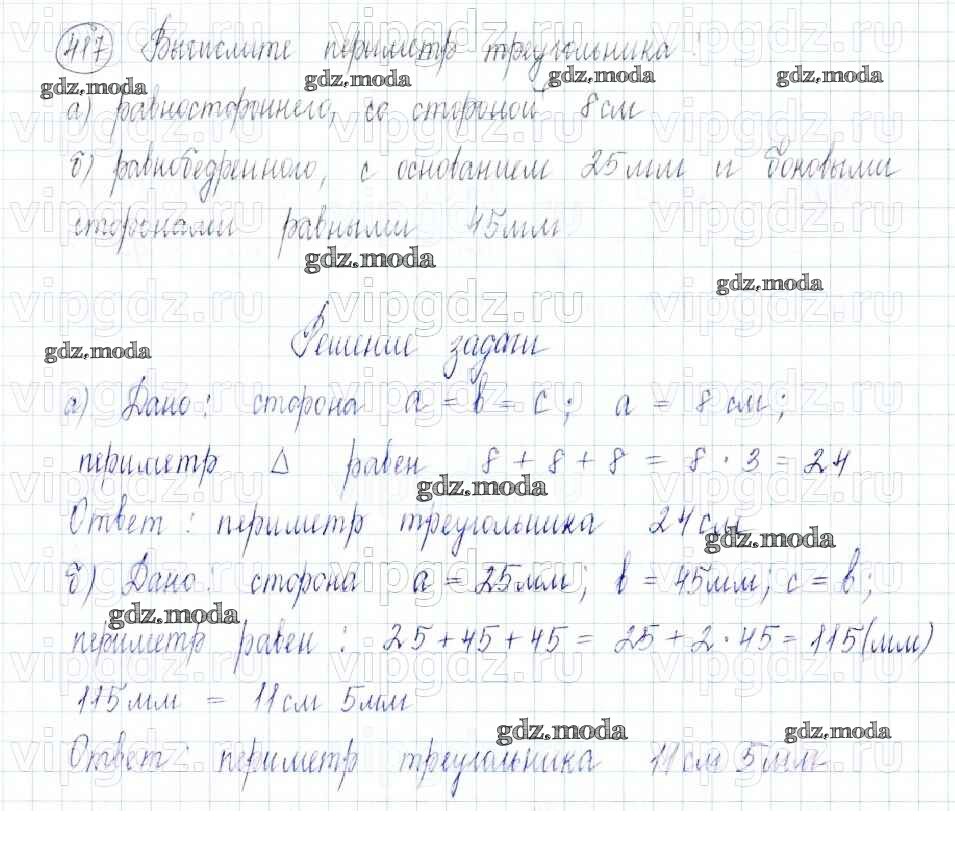 417 Вычислите периметр треугольника:
а) равностороннего, со стороной 8см
б) равнобедренного, с основанием 25мм и боковыми
сторонами равными 45мм
Решение задачи
а) Дано: сторона a = b = c; a = 8 см;
периметр Δ равен 8 + 8 + 8 = 8 · 3 = 24
Ответ: периметр треугольника 24см
б) Дано: сторона a = 25мм; b = 45мм; c = b;
периметр равен: 25 + 45 + 45 = 25 + 2 · 45 = 115(мм)
115мм = 11см 5мм
Ответ: периметр треугольника 11см 5мм
gdz.moda
vipgdz.ru